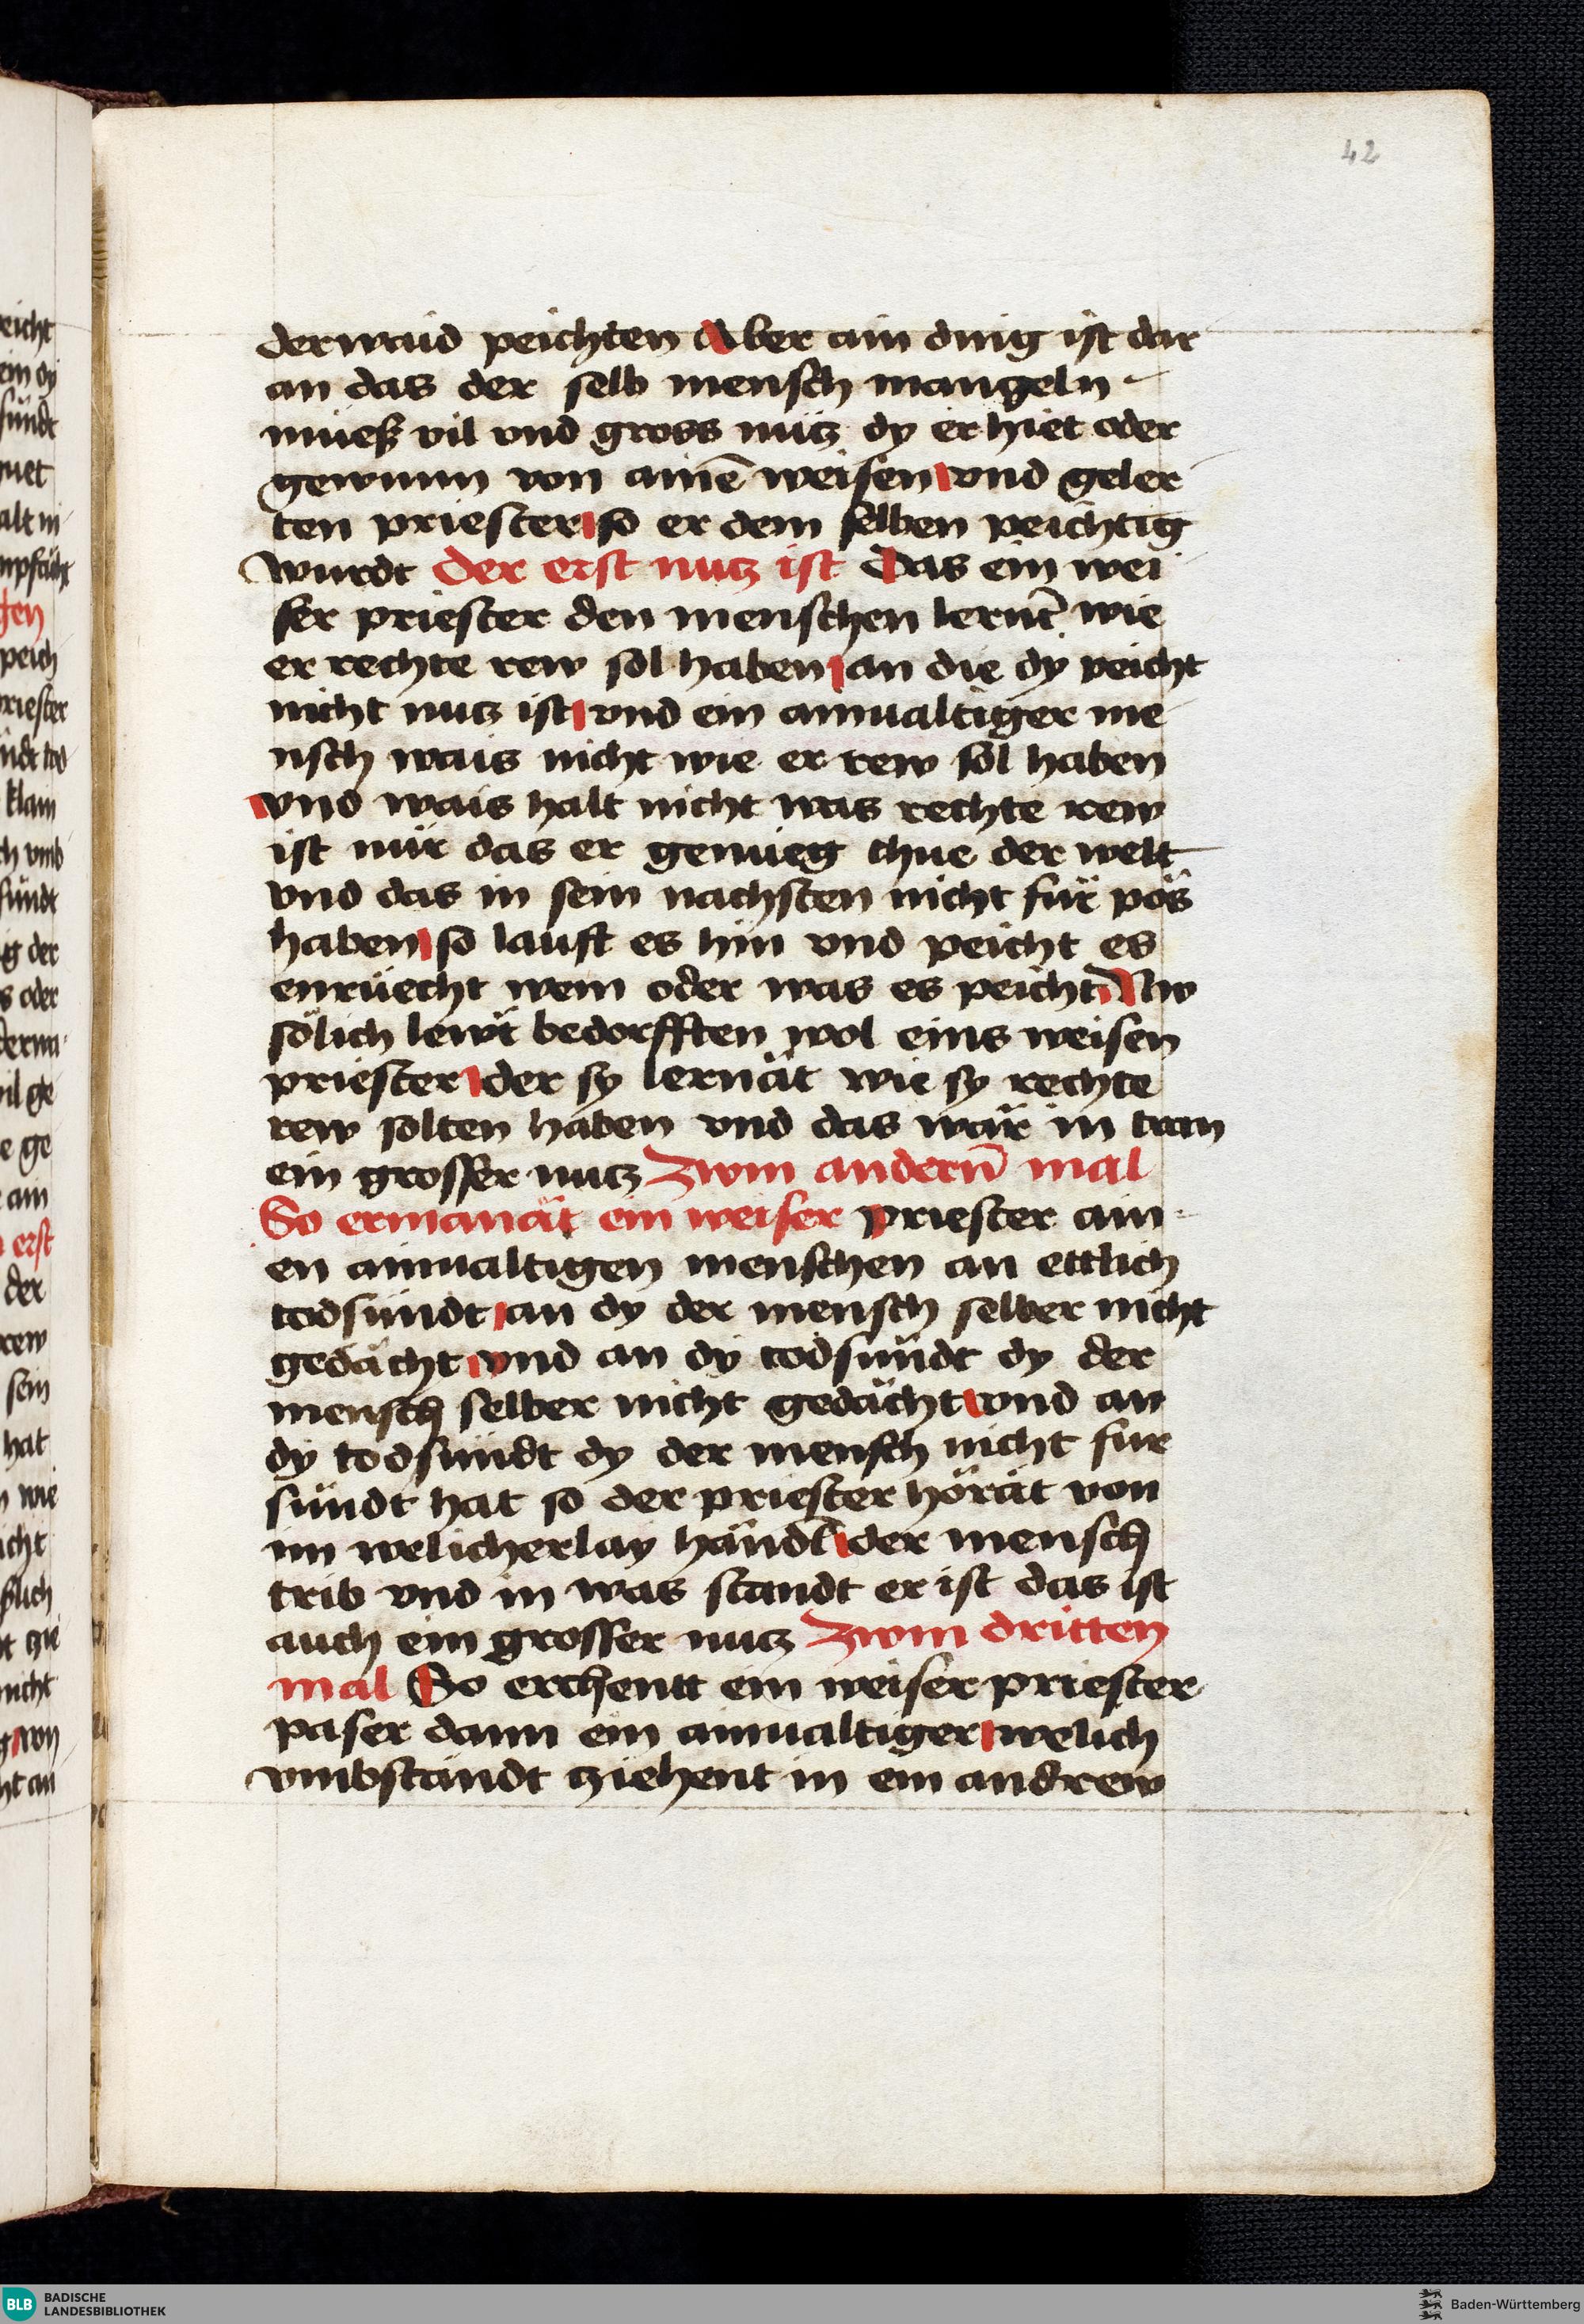 42
derwaid peichten Aber ain ding ist dar
an das der selb mensch mangeln
müesß vil vnd gross nütz dy er hiet oder
gewunn von ainē weisen vnd geler
ten priester so er dem selben peichtig
wurdt der erst nutz ist Das ein wei
ser priester den menschen lernt wie
er rechte rew sol haben an die dy peicht
nicht nutz ist vnd ein ainualtiger me
nsch wais nicht wie er rew söl haben
vnd wais halt nicht was rechte rew
ist nür das er genüeg thue der welt
vnd das in sein nachsten nicht für pös
haben so lauft es hin vnd peicht es
enrüecht wem oder was es peicht Nw
sölich lewt bedorfften wol eins weisen
priester der sy lernät wie sy rechte
rew solten haben vnd das wär in tran
ein grosser nutz Zwm andern̄ mal
So ermanät ein weiser priester ain
en ainualtigen menschen an ettlich
todsündt an dy der mensch selber nicht
gedächt vnd an dy todsündt dy der
mensch selber nicht gedächt vnd an
dy todsündt dy der mensch nicht fur
sündt hat so der priester hörät von
im welicherlay händl der mensch
trib vnd in was standt er ist das ist
auch ein grosser nutz Zwm dritten
mal So erchentt ein weiser priester
paser dann ein ainualtiger welich
vmbständt ziehent in ein andrew
BLB BADISCHE
LANDESBIBLIOTHEK
Baden-Württemberg